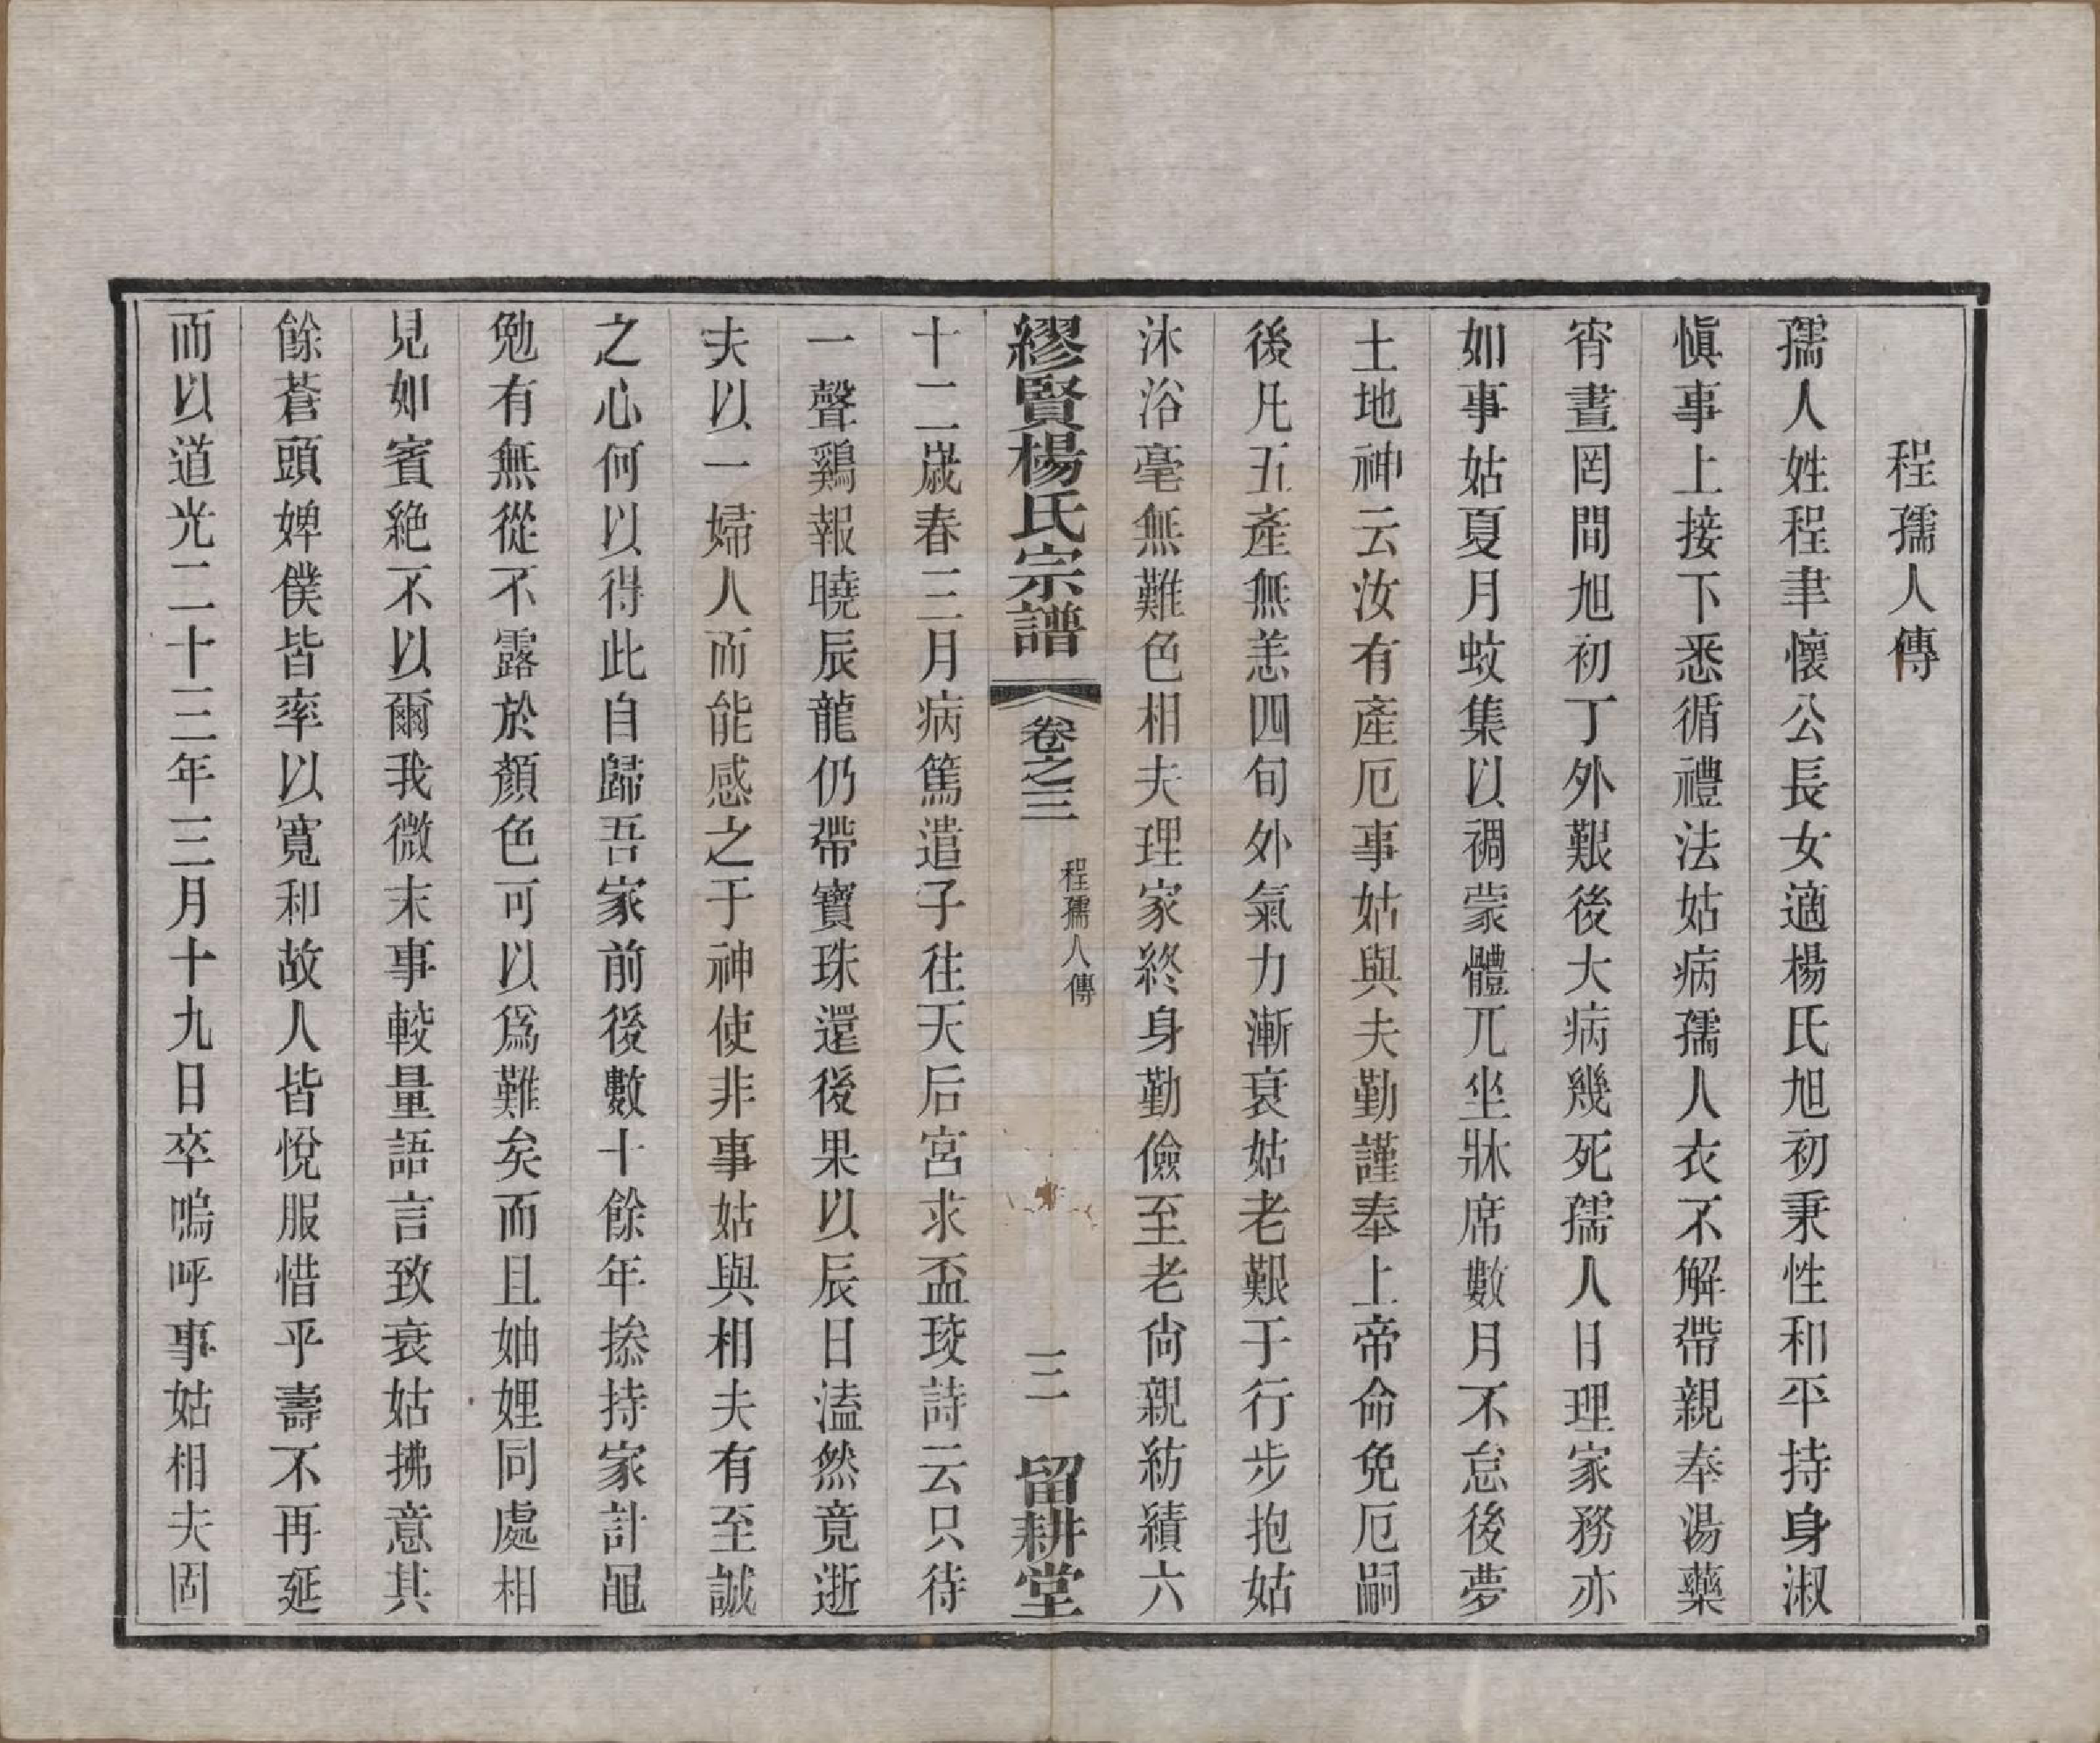 程孺人傳
孺人姓程聿懷公長女適楊氏旭初秉性和平持身淑
愼事上接下悉循禮法姑病孺人衣不解帶親奉湯藥
宵晝罔間旭初丁外艱後大病幾死孺人日理家務亦
如事姑夏月蚊集以裯蒙體兀坐牀席數月不怠後夢
土地神云汝有產厄事姑與夫勤謹奉上帝命免厄嗣
後凡五產無恙四旬外氣力漸衰姑老艱于行步抱姑
沐浴毫無難色相夫理家終身勤儉至老尙親紡績六
繆賢楊氏宗譜 卷之三 程孺人傳 三 留耕堂
十二歲春三月病篤遣子往天后宮求盃珓詩云只待
一聲鷄報曉辰龍仍帶寶珠還後果以辰日溘然竟逝
夫以一婦人而能感之于神使非事姑與相夫有至誠
之心何以得此自歸吾家前後數十餘年摻持家計黽
勉有無從不露於顏色可以爲難矣而且妯娌同處相
見如賓絶不以爾我微末事較量語言致衰姑拂意其
餘蒼頭婢僕皆率以寬和故人皆悅服惜乎壽不再延
而以道光二十三年三月十九日卒嗚呼事姑相夫固